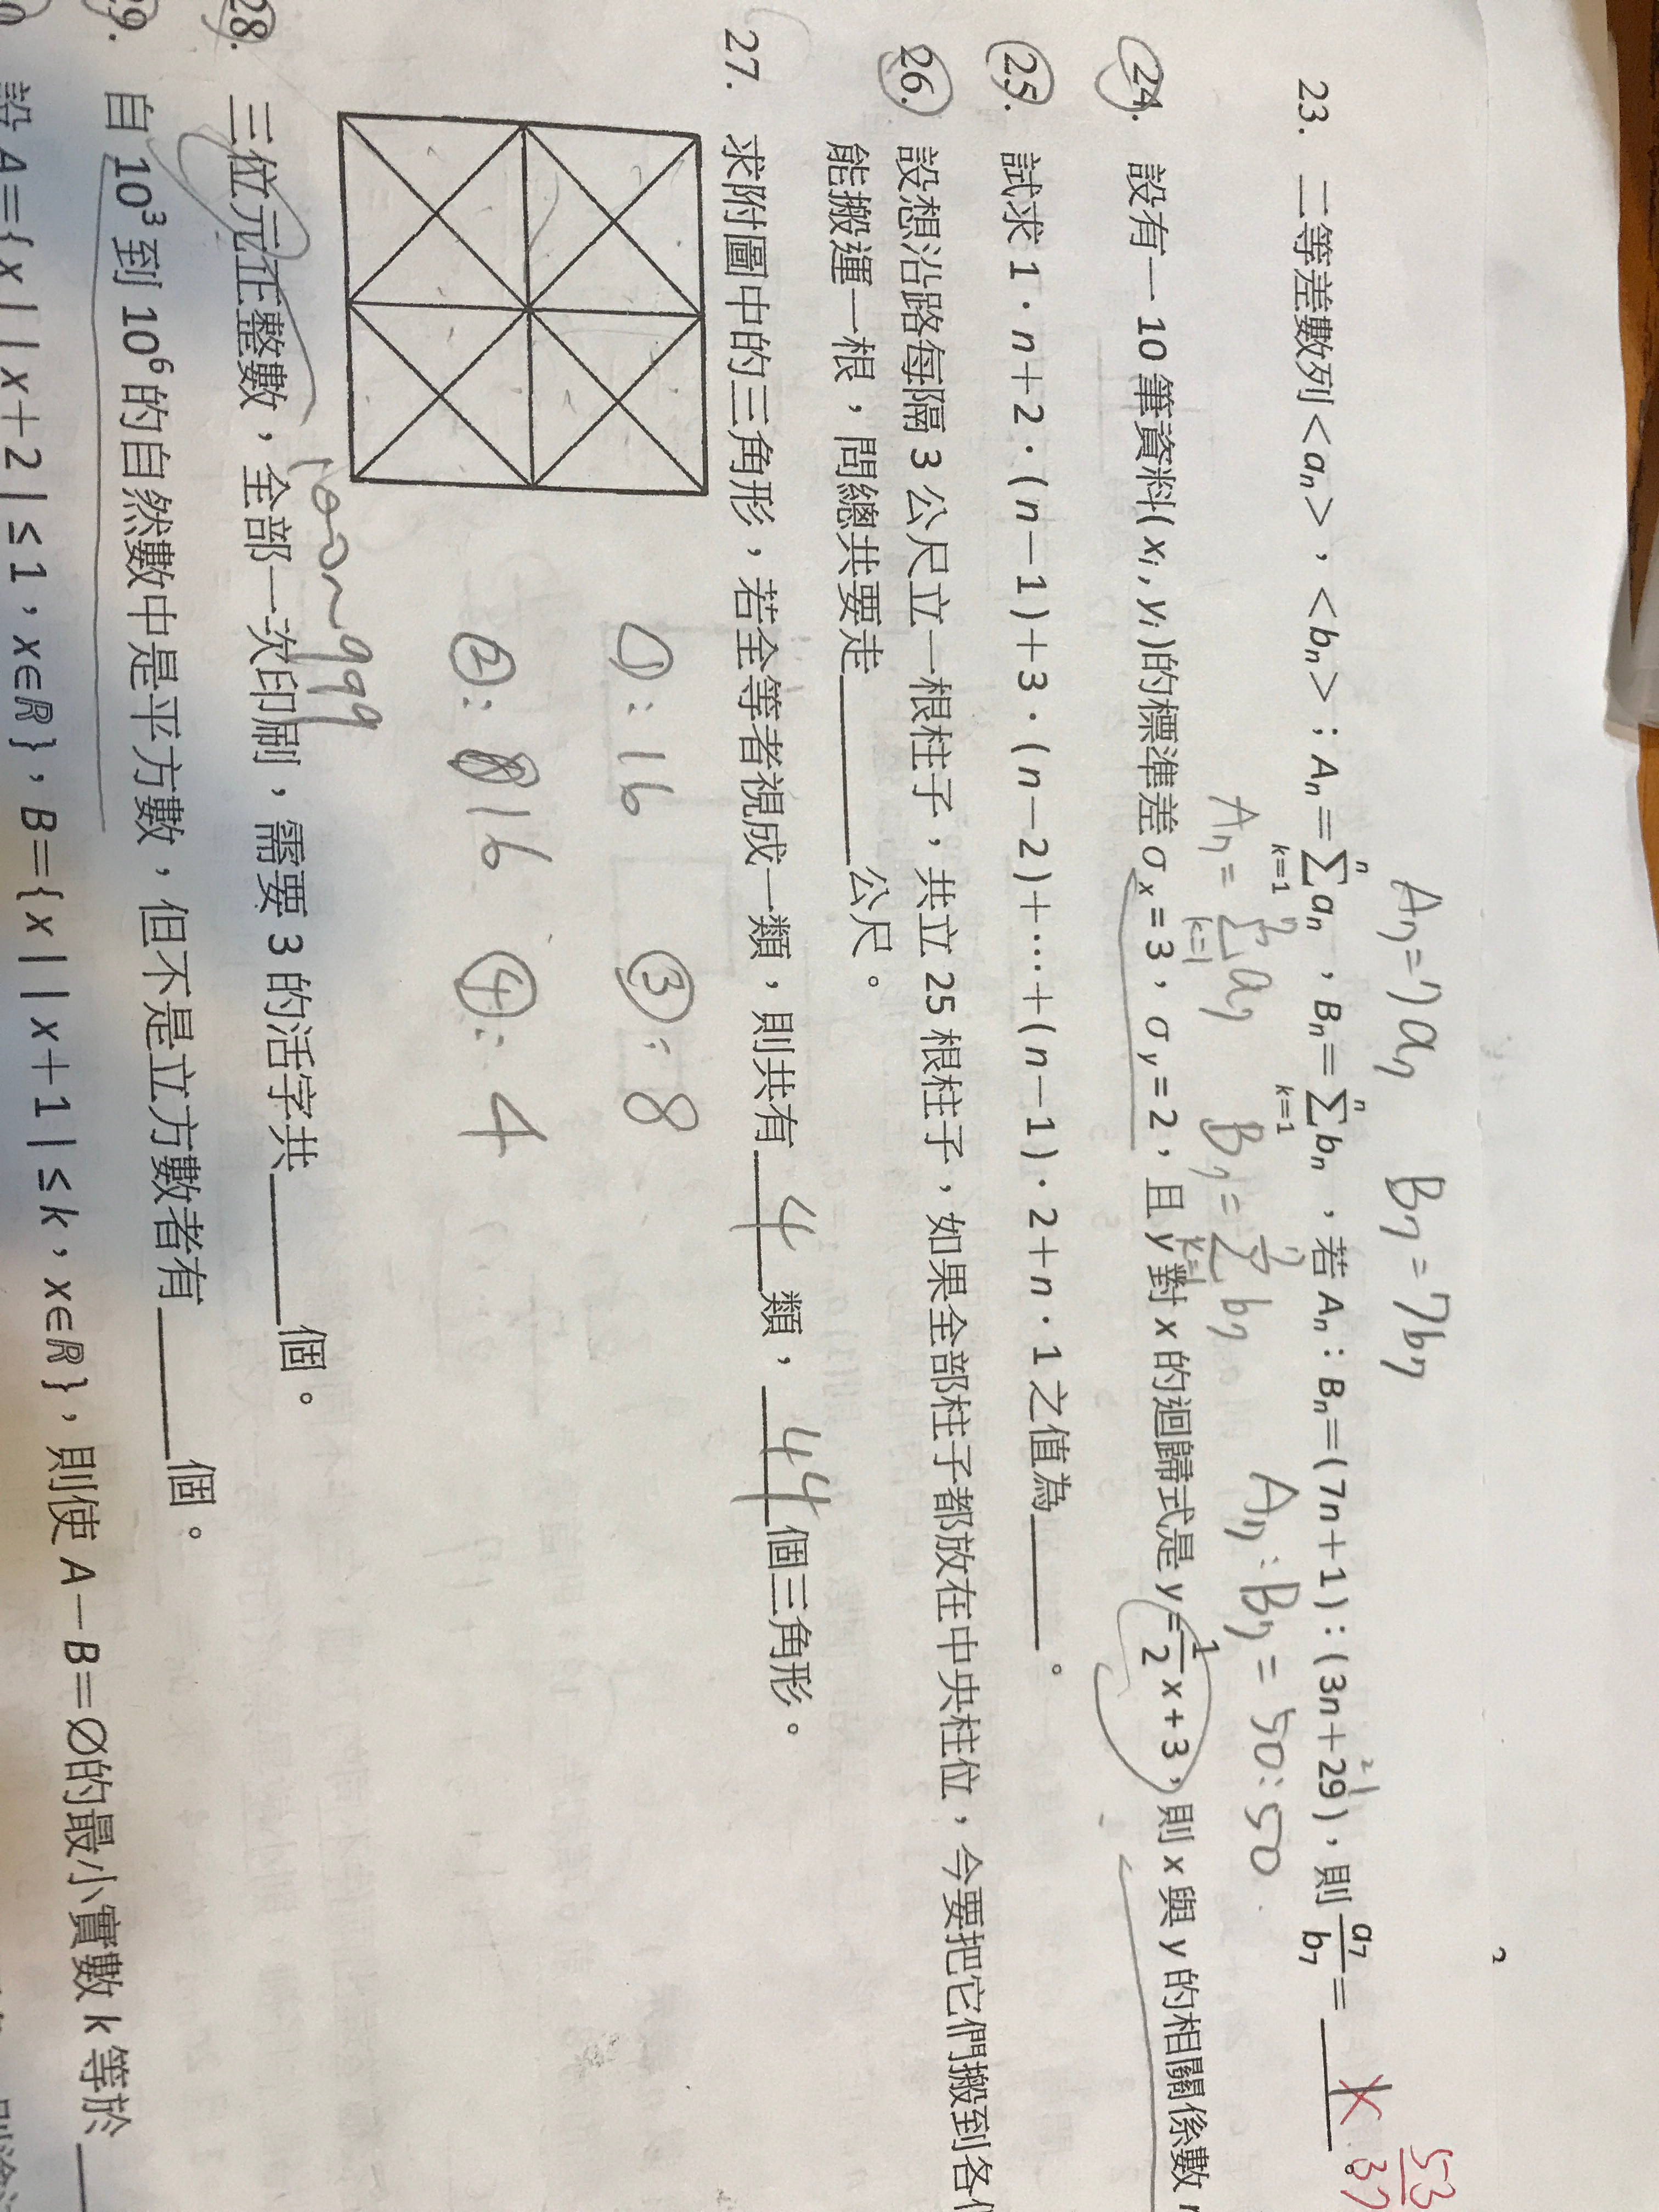 2
An=7a7 B7=7b7
23. 二等差數列<an>，<bn>：An=∑(k=1→n)an，Bn=∑(k=1→n)bn，若An：Bn=(7n+1)：(3n+29)，則a7/b7=______。
21
X 53/37
An=∑(k=1→7)a7 B7=∑(k=1→7)b7 A7:B7=50:50
24. 設有一10筆資料(xi, yi)的標準差σx=3，σy=2，且y對x的迴歸式是y=1/2x+3，則x與y的相關係數r
25. 試求1·n+2·(n−1)+3·(n−2)+…+(n−1)·2+n·1之值為______。
26. 設想沿路每隔3公尺立一根柱子，共立25根柱子，如果全部柱子都放在中央柱位，今要把它們搬到各
能搬運一根，問總共要走______公尺。
27. 求附圖中的三角形，若全等者視成一類，則共有 4 類，44個三角形。
①:16 ③:8
②:16 ④:4
100~999
28. 三位元正整數，全部一次印刷，需要3的活字共______個。
29. 自10³到10⁶的自然數中是平方數，但不是立方數者有______個。
設A={x||x+2|≤1，x∈ℝ}，B={x||x+1|≤k，x∈ℝ}，則使A−B=∅的最小實數k等於